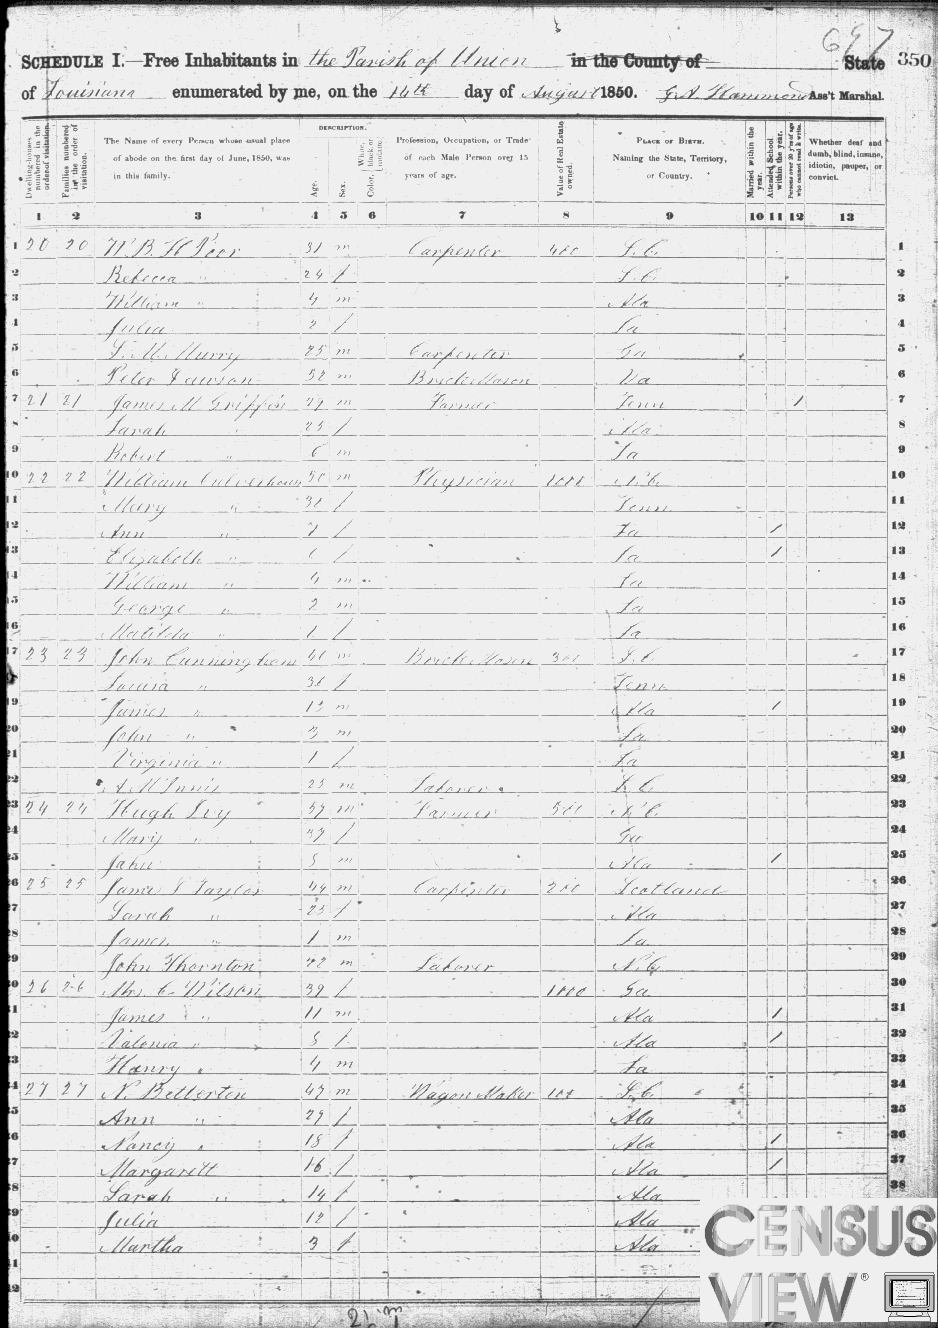 697
SCHEDULE I.—Free Inhabitants in the Parish of Union in the County of State 350
of Louisiana enumerated by me, on the 14th day of August 1850. Ass't Marshal.
DESCRIPTION.
Dwelling-houses numbered in the order of visitation. Families numbered in the order of visitation. The Name of every Person whose usual place of abode on the first day of June, 1850, was in this family. Age. Sex. Color, White, black or mulatto. Profession, Occupation, or Trade of each Male Person over 15 years of age. Value of Real Estate owned. PLACE OF BIRTH. Naming the State, Territory, or Country. Married within the year. Attended School within the year. Persons over 20 y'rs of age who cannot read & write. Whether deaf and dumb, blind, insane, idiotic, pauper, or convict.
1 2 3 4 5 6 7 8 9 10 11 12 13
1 20 20 W. B. H Poor 31 m Carpenter 400 S.C. 1
2 Rebecca " 24 f S.C. 2
3 William " 4 m Ala 3
4 Julia 2 f La 4
5 Murry 25 m Carpenter Ga 5
6 Peter 52 m Brick Mason Va 6
7 21 21 James M Griffin 29 m Farmer Tenn / 7
8 Sarah " 25 f Ala 8
9 Robert " 6 m La 9
10 22 22 William Culverhouse 50 m Physician 1000 N.C. 10
11 Mary " f Tenn 11
12 Ann " 7 f La / 12
13 Elizabeth " f La / 13
14 William " 4 m La 14
15 George " 2 m La 15
16 Matilda " 1 f La 16
17 23 23 John Cunningham m Brick Mason 300 S.C. 17
18 Louisa " f Tenn 18
19 James " m Ala / 19
20 John " 3 m La 20
21 Virginia " 1 f La 21
22 A McInnis 25 m Laborer S.C. 22
23 24 24 Hugh Ivy 57 m Farmer 500 N.C. 23
24 Mary " 37 f Ga 24
25 John m Ala / 25
26 25 25 James Taylor 44 m Carpenter 200 Scotland 26
27 Sarah " 23 f Ala 27
28 James " 1 m La 28
29 John Thornton 22 m Laborer N.C. 29
30 26 26 Mrs. C Wilson 39 f 1000 Ga 30
31 James " 11 m Ala / 31
32 Valonia " f Ala / 32
33 Henry " 4 m La 33
34 27 27 N. Betterton 47 m Wagon Maker 100 S.C. 34
35 Ann " 29 f Ala 35
36 Nancy " 18 f Ala / 36
37 Margarett 16 f Ala / 37
38 Sarah " 14 f Ala 38
39 Julia 12 f Ala
40 Martha 3 f Ala
41
42
CENSUS
VIEW®